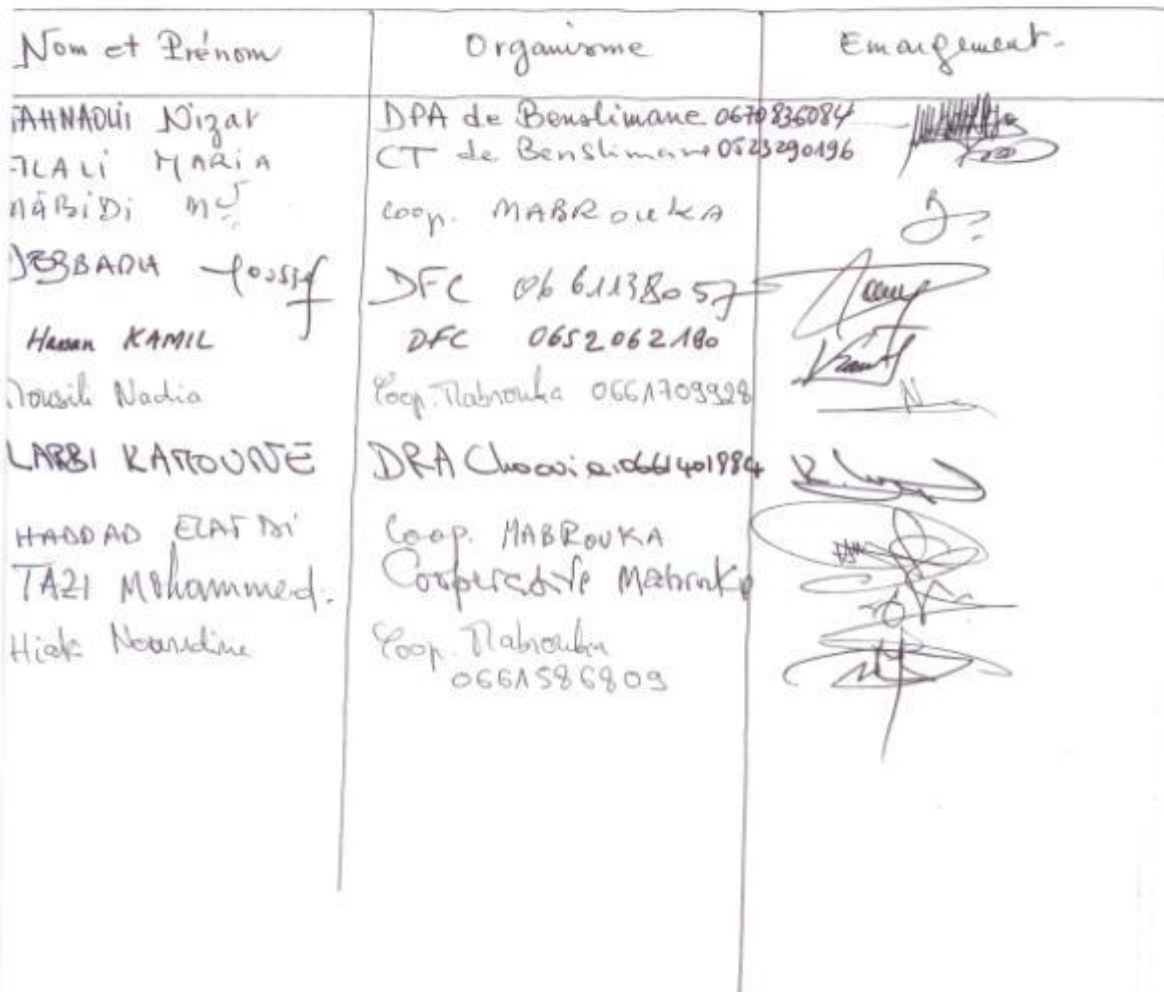 Nom et Prénom Organisme Emargement.
Nizar DPA de Benslimane 0670836084
MARiA CT de Benslimane 0523290196
Coop. MABROUKA
Youssef DFC 0661138057
Hassan KAMIL DFC 0652062180
Nadia Coop. Mabrouka 0661709928
LARBI KAMOUNE DRA Chaouia 0661401984
HADDAD Coop. MABROUKA
TAZI Mohammed. Cooperative Mabrouka
Nourdine Coop. Mabrouka
0661586809